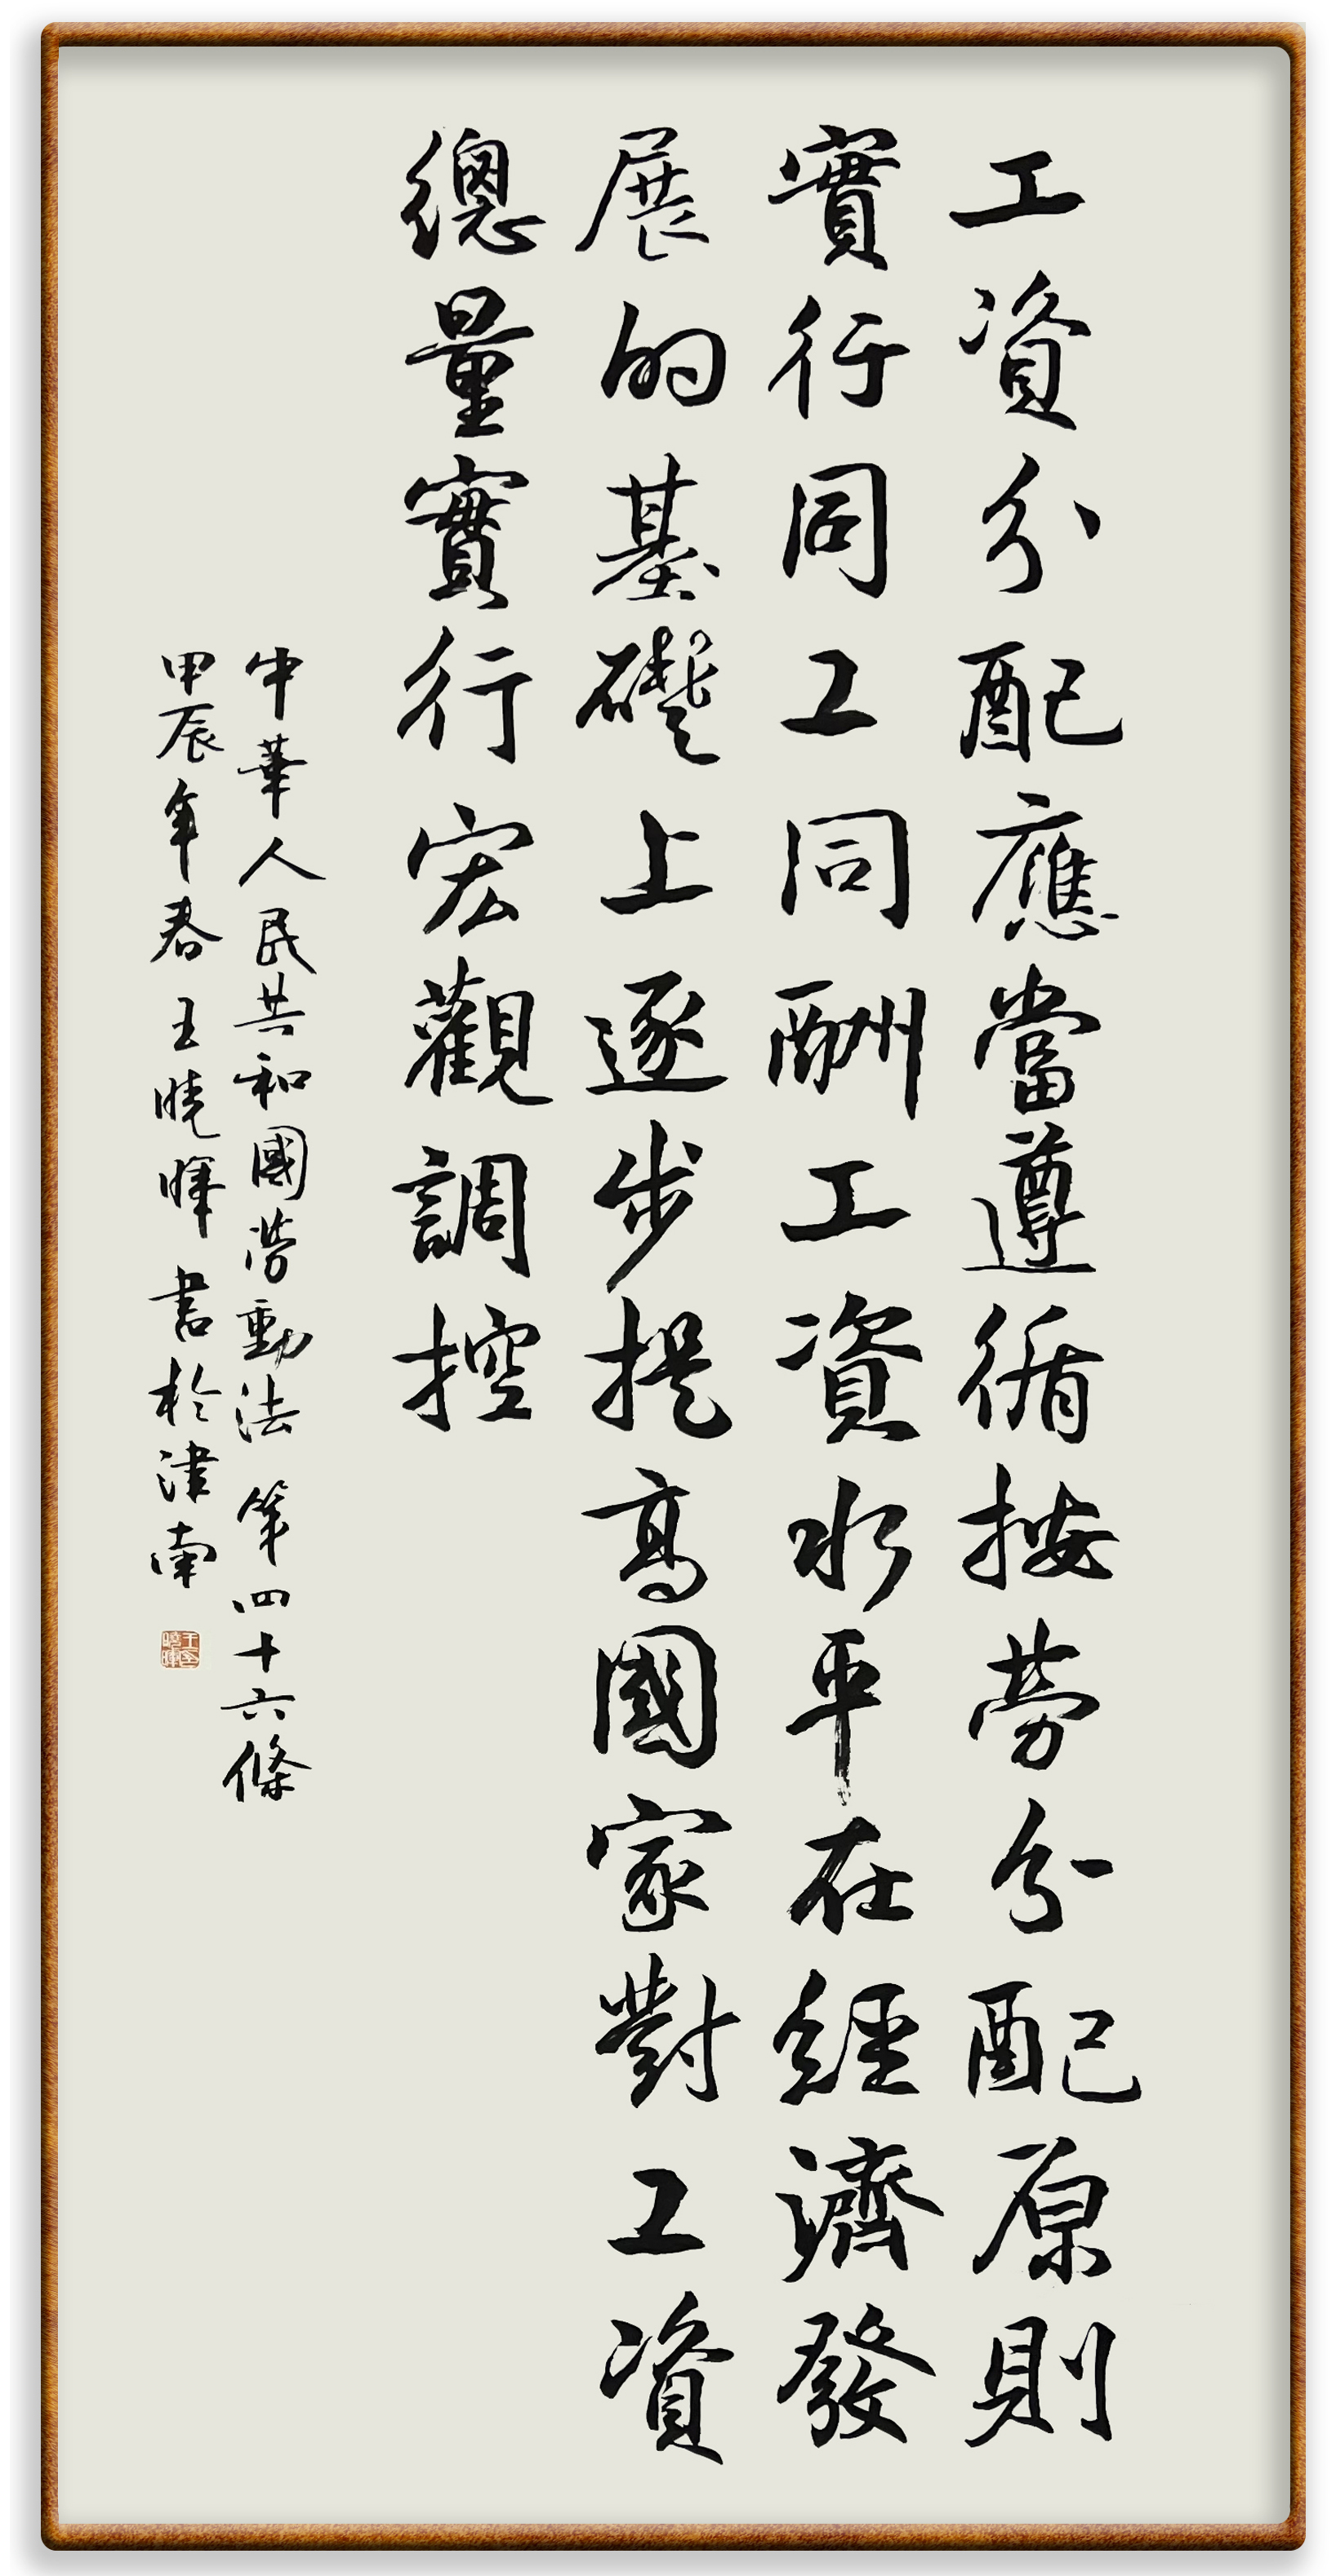 工資分配應當遵循按勞分配原則
實行同工同酬工資水平在經濟發
展的基礎上逐步提高國家對工資
總量實行宏觀調控
中華人民共和國勞動法 第四十六條
甲辰年春王曉暉書於津南